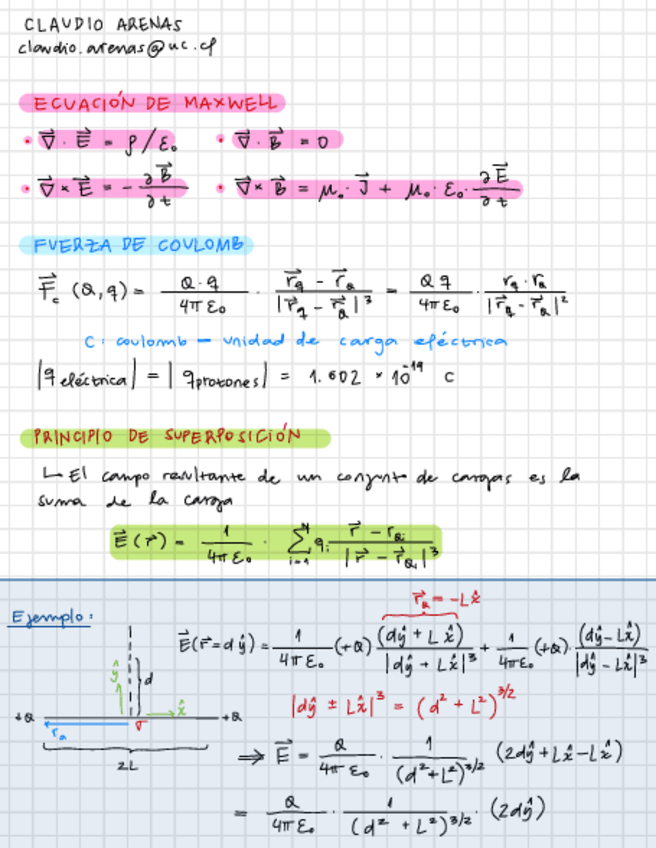 CLAUDIO ARENAS
claudio.arenas@uc.cl
ECUACIÓN DE MAXWELL
• ∇⃗ · E⃗ = ρ/ε₀ • ∇⃗ · B⃗ = 0
• ∇⃗ × E⃗ = - ∂B⃗/∂t • ∇⃗ × B⃗ = μ₀ · J⃗ + μ₀ · ε₀ · ∂E⃗/∂t
FUERZA DE COULOMB
F⃗c (Q,q) = Q·q/4πε₀ · (r⃗q - r⃗Q)/|r⃗q - r⃗Q|³ = Qq/4πε₀ · rq·rQ/|r⃗q - r⃗Q|²
C: coulomb - unidad de carga eléctrica
|q eléctrica| = |q protones| = 1.602 × 10⁻¹⁹ C
PRINCIPIO DE SUPERPOSICIÓN
↳ El campo resultante de un conjunto de cargas es la
suma de la carga
E⃗(r⃗) = 1/4πε₀ · Σᵢ₌₁ᴺ qᵢ (r⃗ - rQᵢ)/|r⃗ - r⃗Qᵢ|³
Ejemplo:
r⃗Q = -Lx̂
E⃗(r⃗=dŷ) = 1/4πε₀ (+Q) (dŷ + Lx̂)/|dŷ + Lx̂|³ + 1/4πε₀ (+Q) · (dŷ - Lx̂)/|dŷ - Lx̂|³
ŷ d
x̂
+Q rQ +Q
2L
|dŷ ± Lx̂|³ = (d² + L²)^3/2
⇒ E⃗ = Q/4πε₀ · 1/(d² + L²)^3/2 (2dŷ + Lx̂ - Lx̂)
= Q/4πε₀ · 1/(d² + L²)^3/2 · (2dŷ)